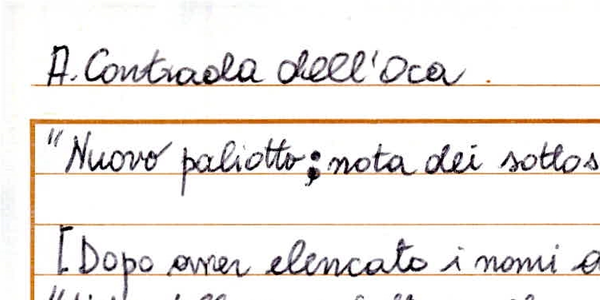 A. Contrada dell'Oca.
"Nuovo paliotto; nota dei sottos
[Dopo aver elencato i nomi d